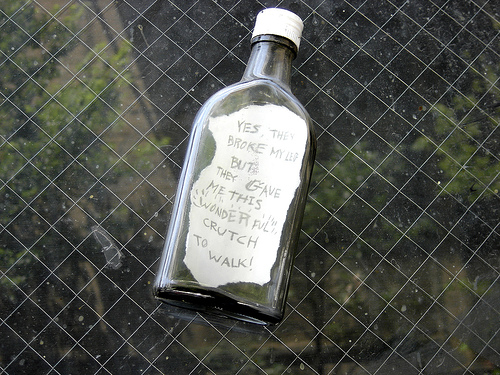 YES, THEY
BROKE MY LEG
BUT
THEY GAVE
ME THIS
WONDERFUL
CRUTCH
TO WALK!